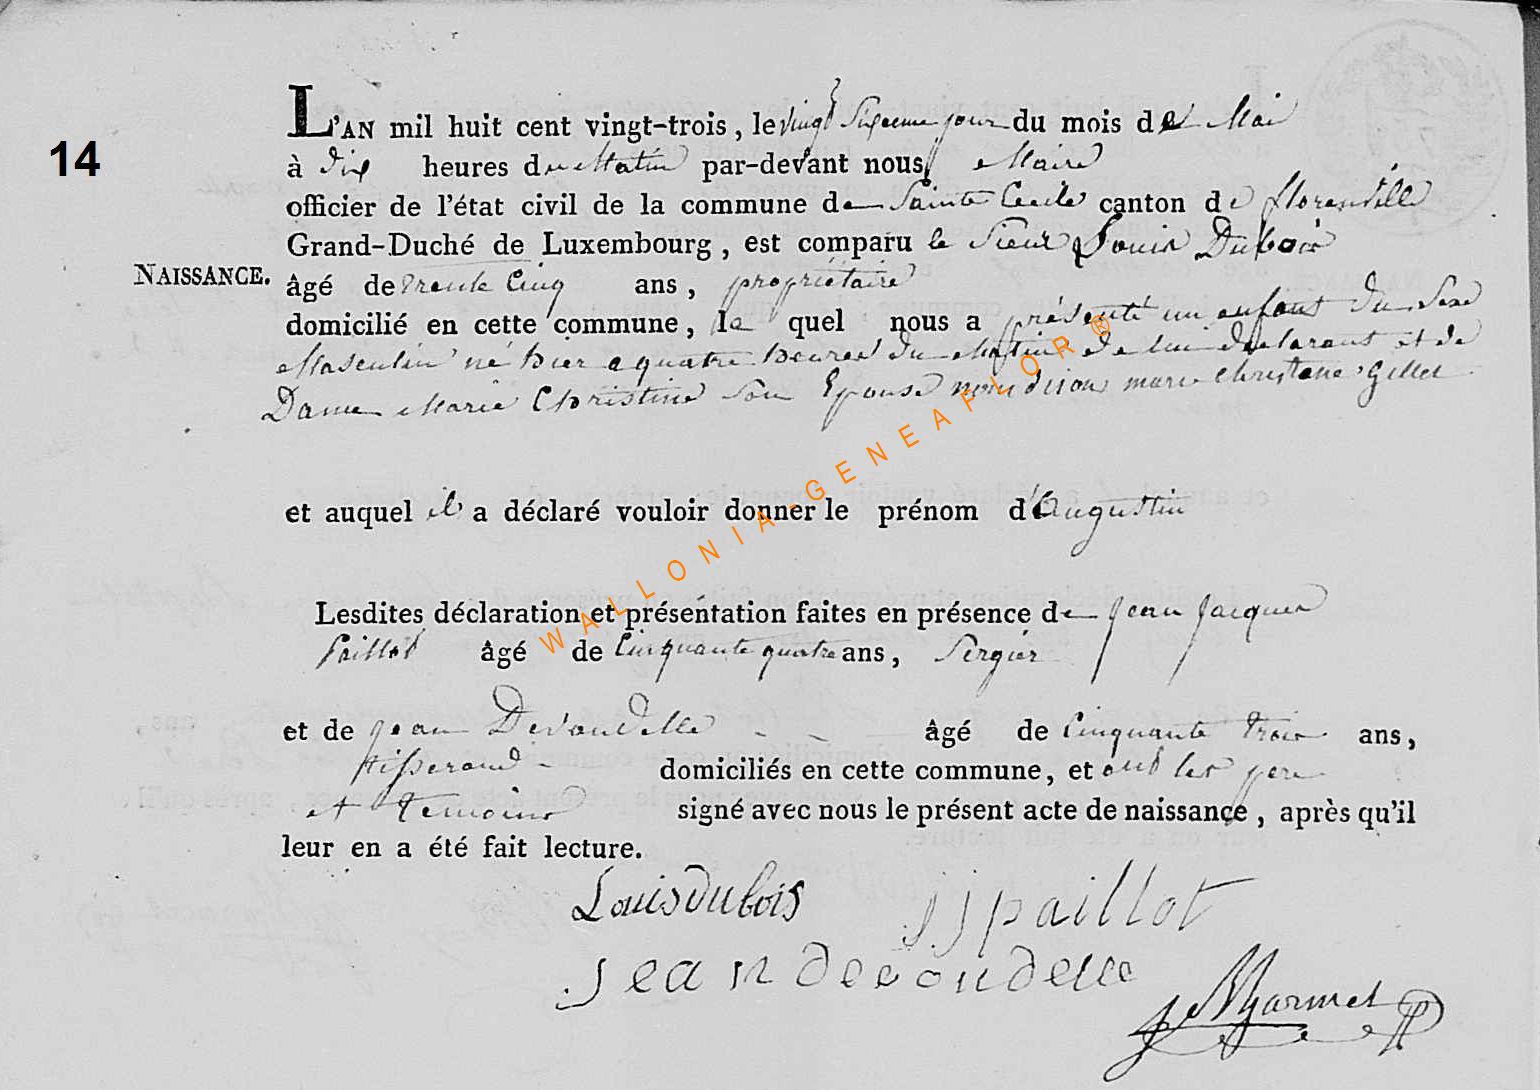 L'AN mil huit cent vingt-trois, le vingt Sixieme jour du mois de Mai
14
à dix heures du Matin par-devant nous Maire
officier de l'état civil de la commune de Sainte Cecile canton de florenville
Grand-Duché de Luxembourg, est comparu le Sieur Louis Dubois
NAISSANCE.
âgé de trente Cinq ans, propriétaire
domicilié en cette commune, le quel nous a présenté un enfant du Sexe
Masculin né hier a quatre heures du Matin de lui déclarant et de
Dame Marie Christine Son Epouse nous disons marie christine Gillet
et auquel il a déclaré vouloir donner le prénom d'Augustin
Lesdites déclaration et présentation faites en présence de Jean Jacques
Paillot âgé de Cinquante quatre ans, Sergier
et de Jean Devoudelle - - âgé de Cinquante trois ans,
tisserand - domiciliés en cette commune, et ont les pere
et temoins signé avec nous le présent acte de naissance, après qu'il
leur en a été fait lecture.
Louis dubois jjpaillot
jean devoudelle
WALLONIA-GENEAFLOR ®